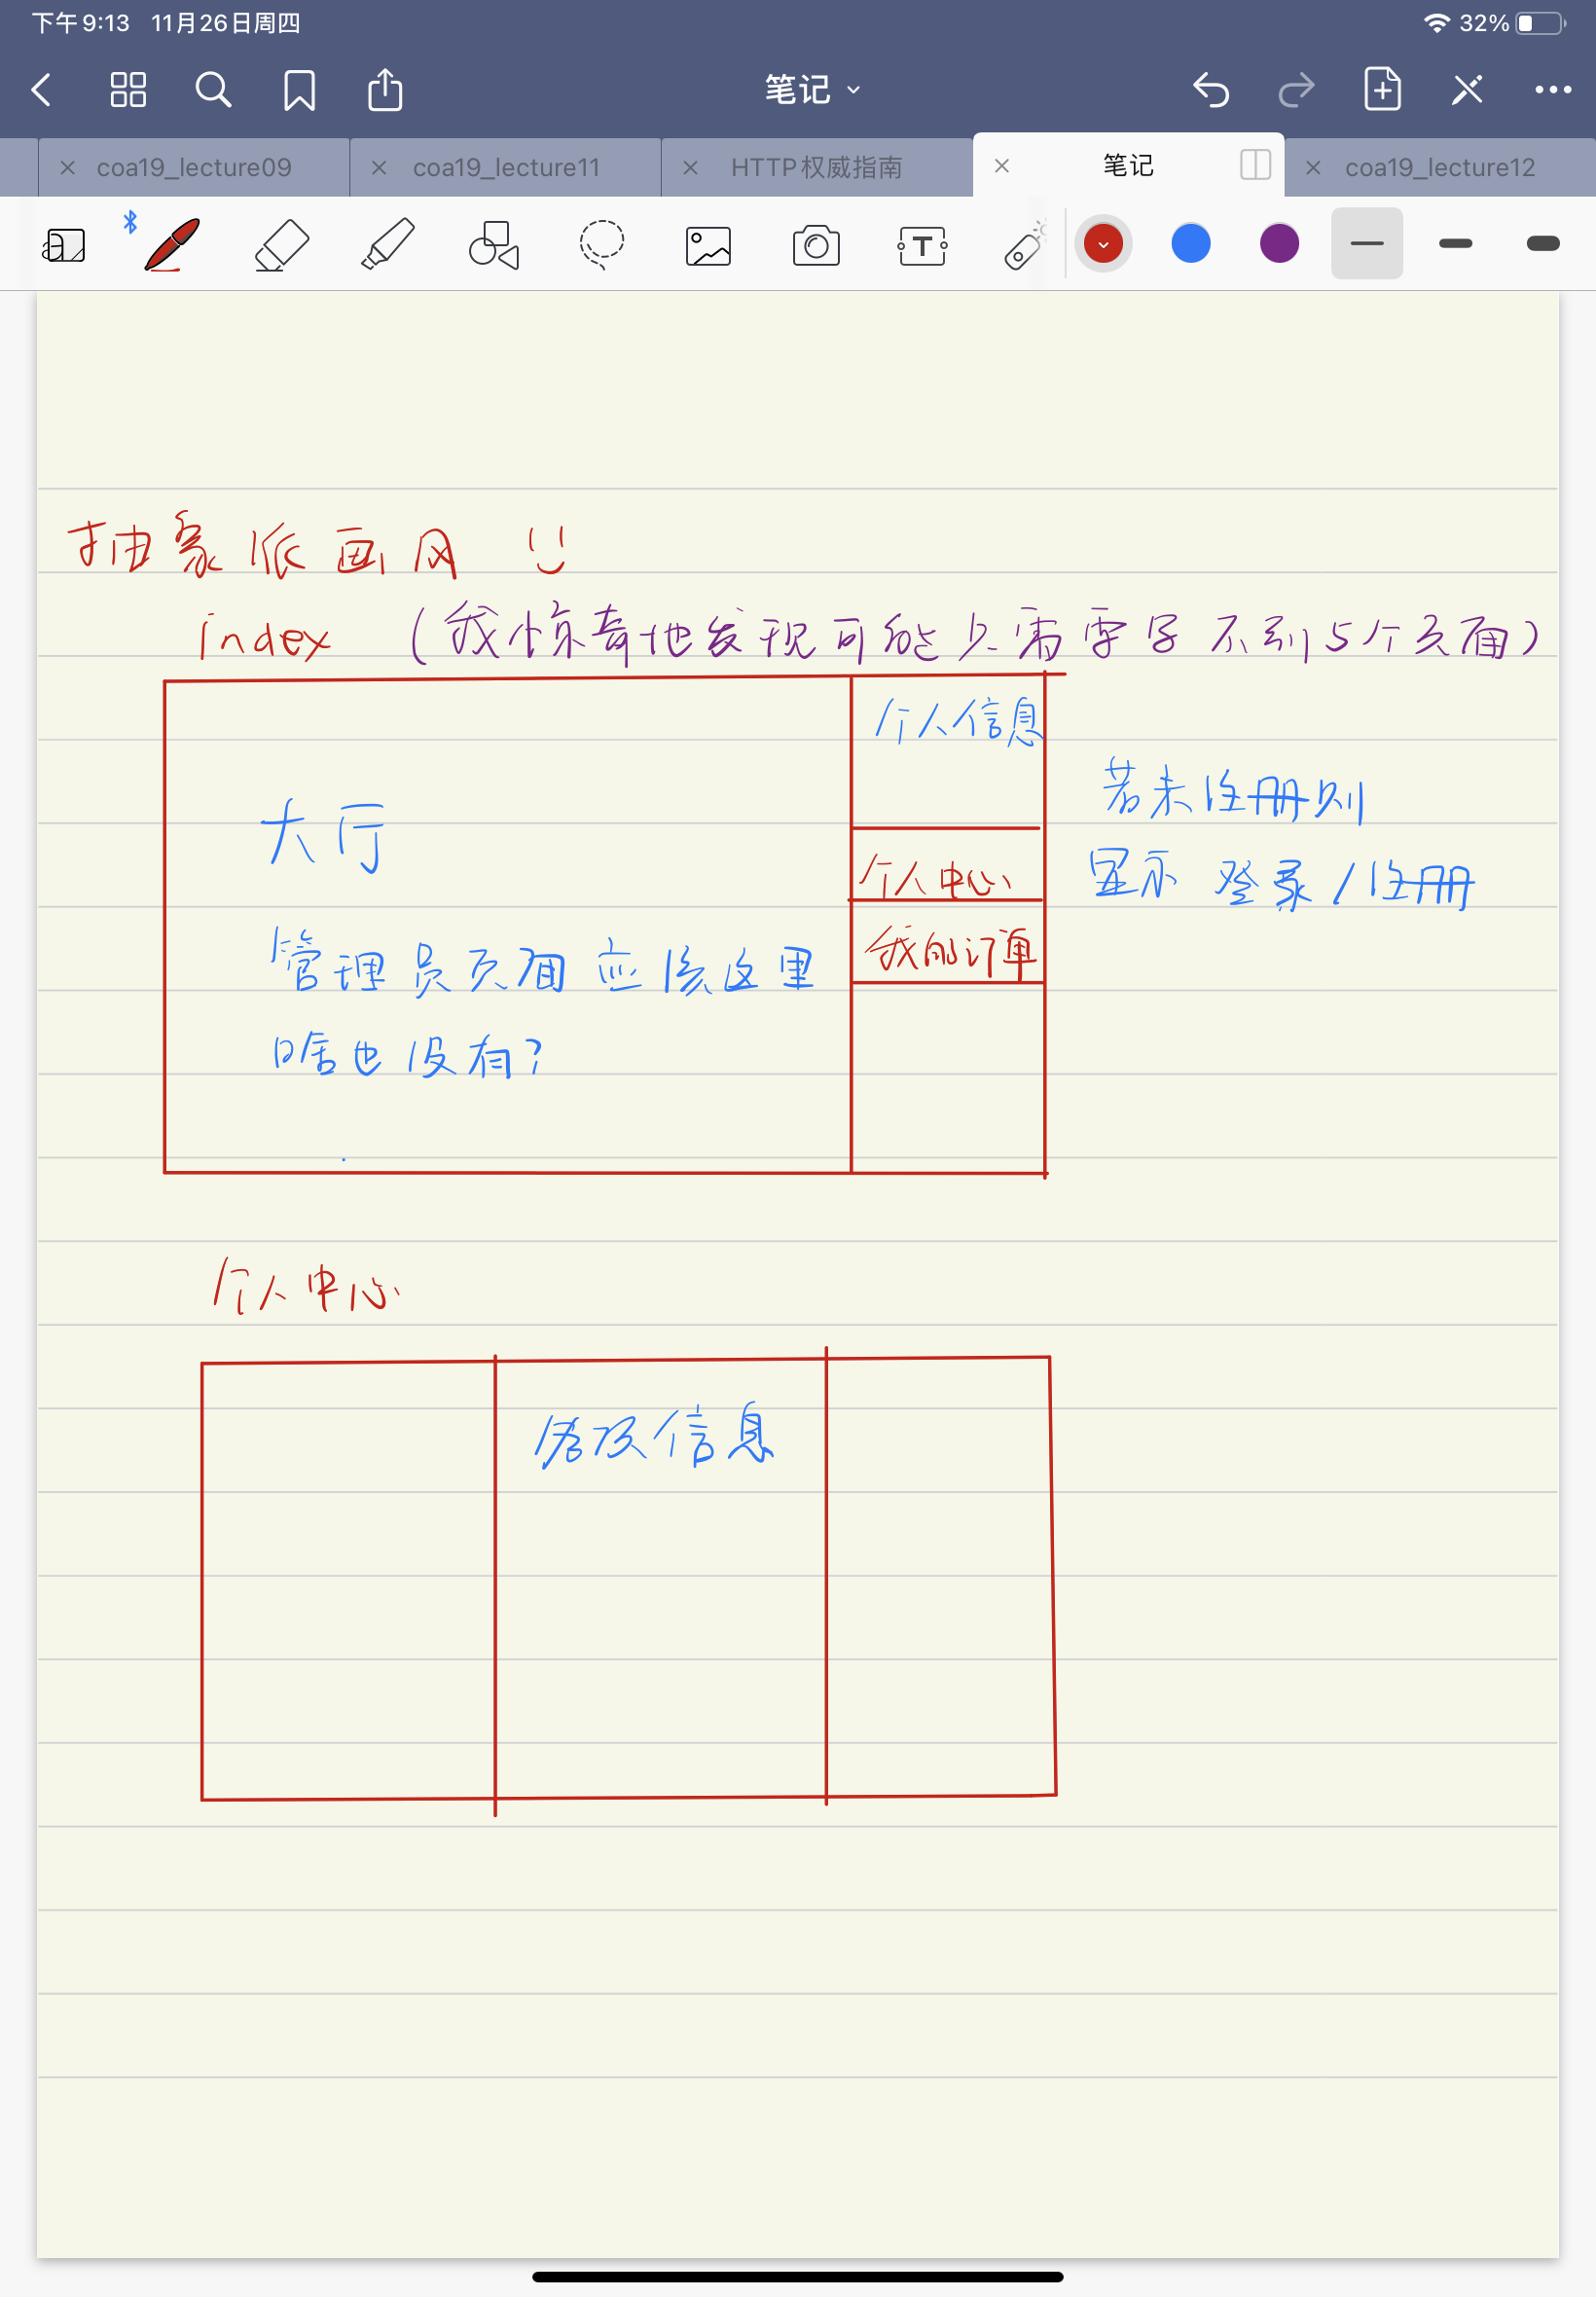 下午9:13 11月26日周四
32%
笔记
coa19_lecture09
coa19_lecture11
HTTP权威指南
笔记
coa19_lecture12
抽象派画风
index (我惊奇地发现可能只需要写不到5个页面)
个人信息
若未注册则
大厅
个人中心
显示 登录/注册
我的订单
管理员页面应该这里
啥也没有?
个人中心
信息